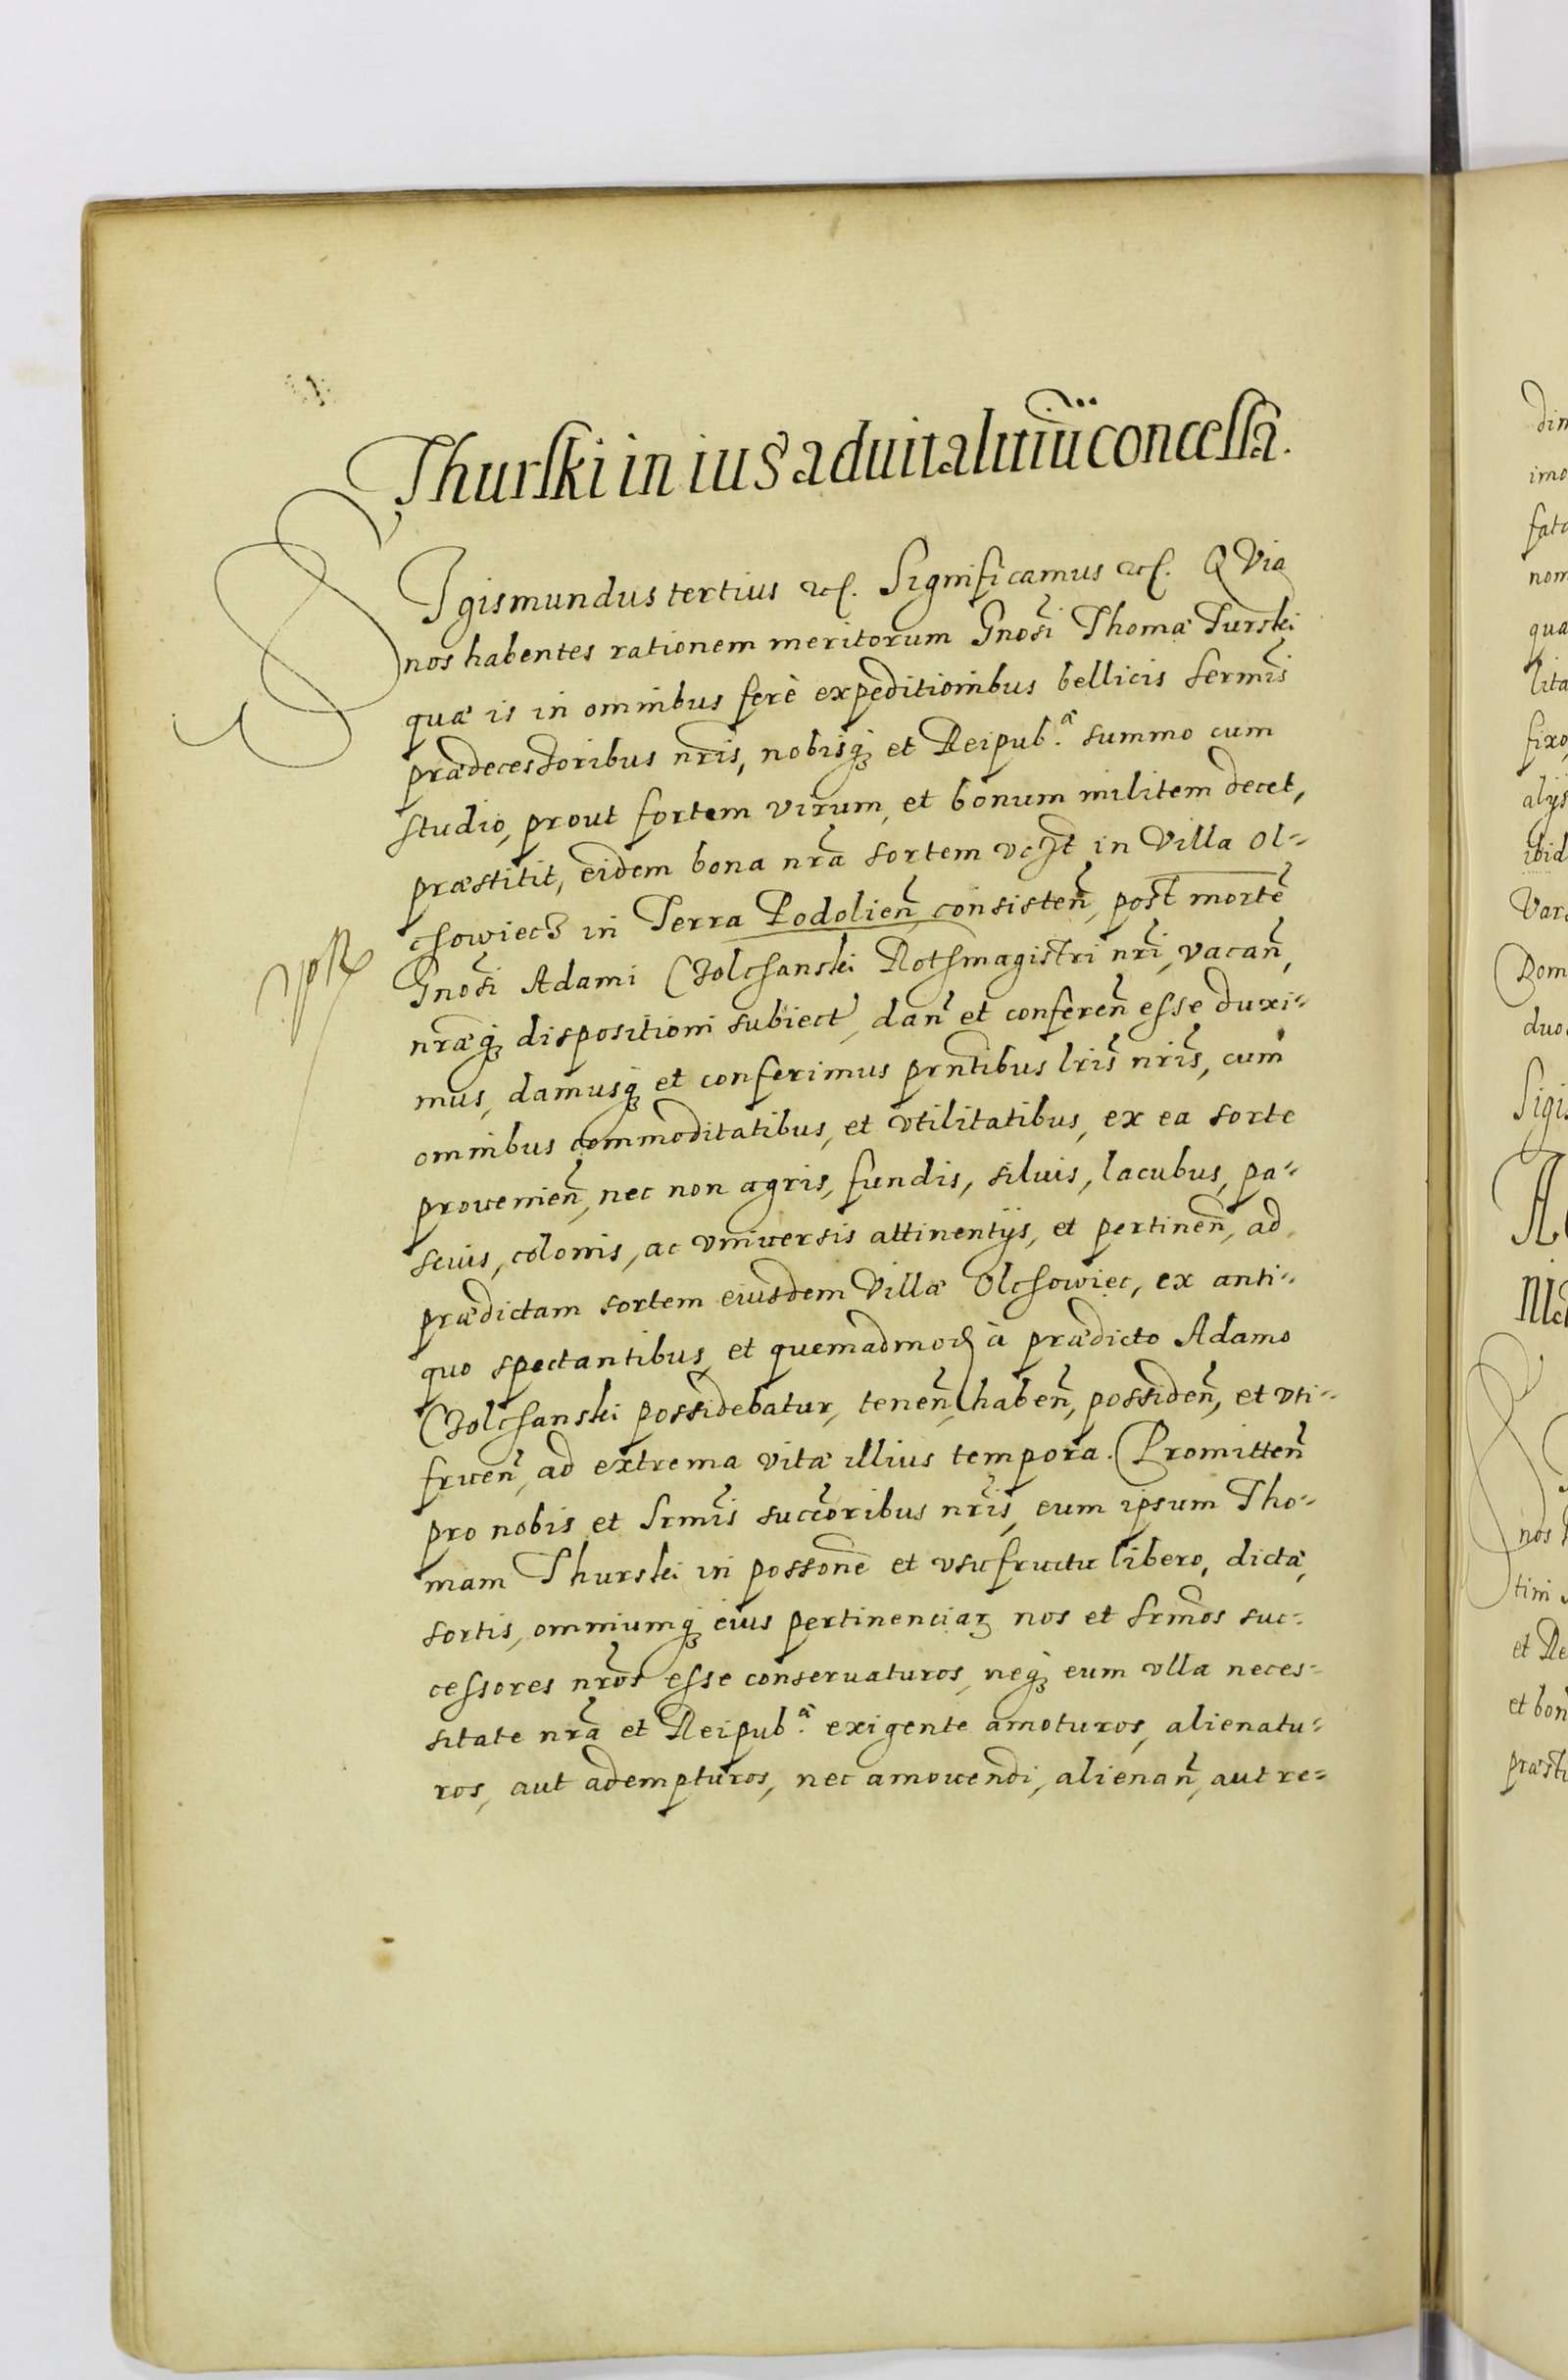 Thurski in ius aduitalitiũ concessa.
SIgismundus tertius etc. Significamus etc. QVia
nos habentes rationem meritorum Gnosi Thomæ Turski
quæ is in omnibus ferè expeditionibus bellicis Sermis
prædecessoribus nris, nobisq3 et Reipub.æ summo cum
studio, prout fortem virum, et bonum militem decet,
præstitit, eidem bona nra sortem vczt in Villa Ol-
chowiecz in Terra Podolien̄ consisten̄, post mortē
Gnosi Adami Czolchanski Rothmagistri nri, vacan̄,
nræq3 dispositioni subiect, dan̄ et conferen̄ esse duxi-
mus, damusq3 et conferimus prntibus lris nris, cum
omnibus commoditatibus, et vtilitatibus, ex ea sorte
prouenien̄, nec non agris, fundis, siluis, lacubus, pa-
scuis, colonis, ac vniuersis attinentijs, et pertinen̄, ad
prædictam sortem eiusdem Villæ Olchowiec, ex anti-
quo spectantibus, et quemadmod à prædicto Adamo
Czolchanski possidebatur, tenen̄, haben̄, possiden̄, et vti-
fruen̄, ad extrema vitæ illius tempora. Promitten̄
pro nobis et Srmis succoribus nris, eum ipsum Tho-
mam Thurski in possonē et vsufructu libero, dictæ,
sortis, omniumq3 eius pertinenciar nos et Srmos suc-
cessores nros esse conseruaturos, neq3 eum vlla neces-
sitate nra et Reipub.æ exigente amoturos, alienatu-
ros, aut adempturos, nec amouendi, alienan̄, aut re-